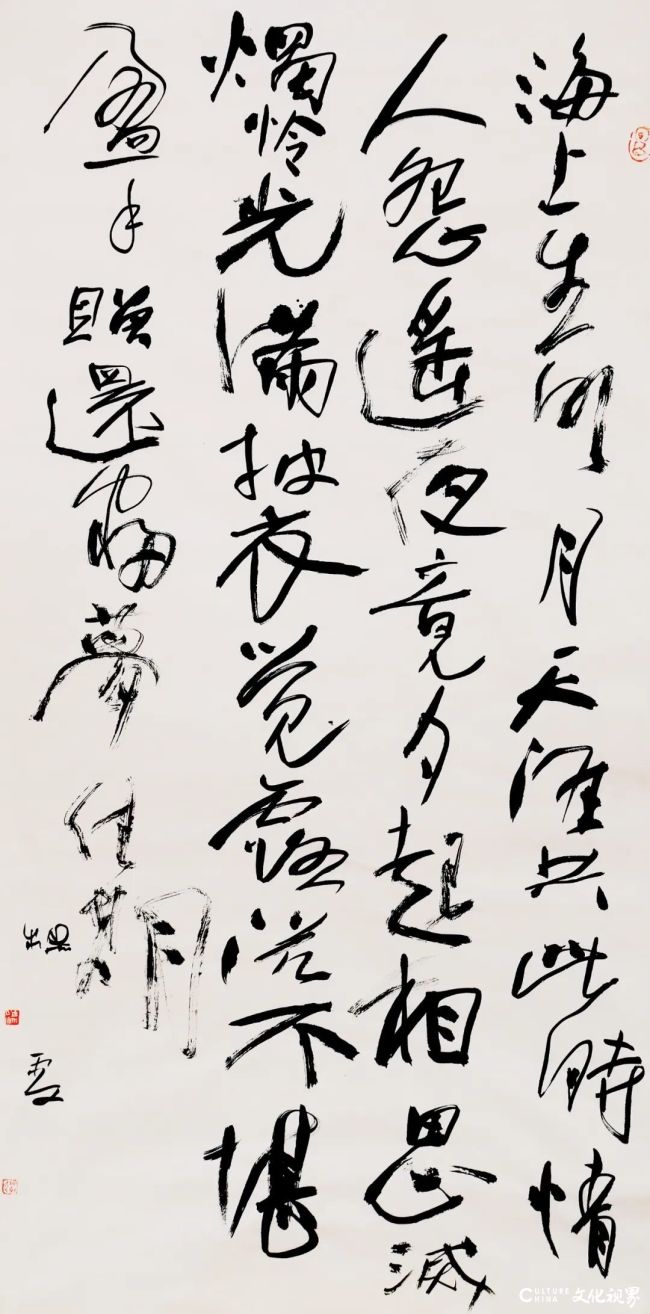 海上生明月天涯共此時情
人怨遥夜竟夕起相思滅
燭怜光滿披衣觉露滋不堪
盈手贈還寢夢佳期
CULTURE CHINA 文化视界